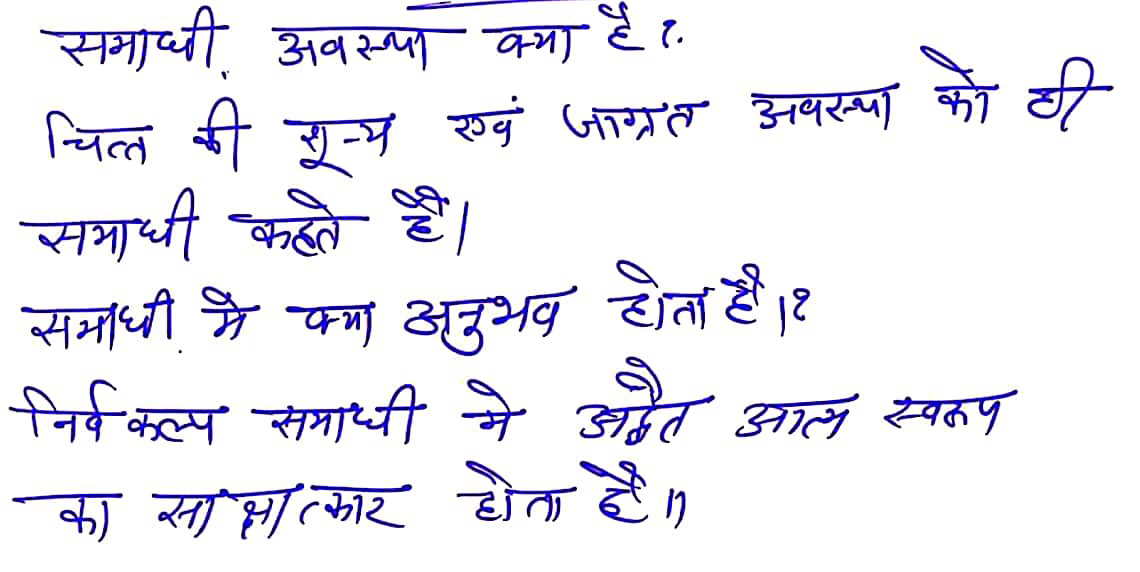 समाधी अवस्था क्या है ?
चित्त की शून्य एवं जाग्रत अवस्था को ही
समाधी कहते हैं।
समाधी में क्या अनुभव होता है।?
निर्वकल्प समाधी मे अद्वैत आत्म स्वरूप
का साक्षात्कार होता है॥